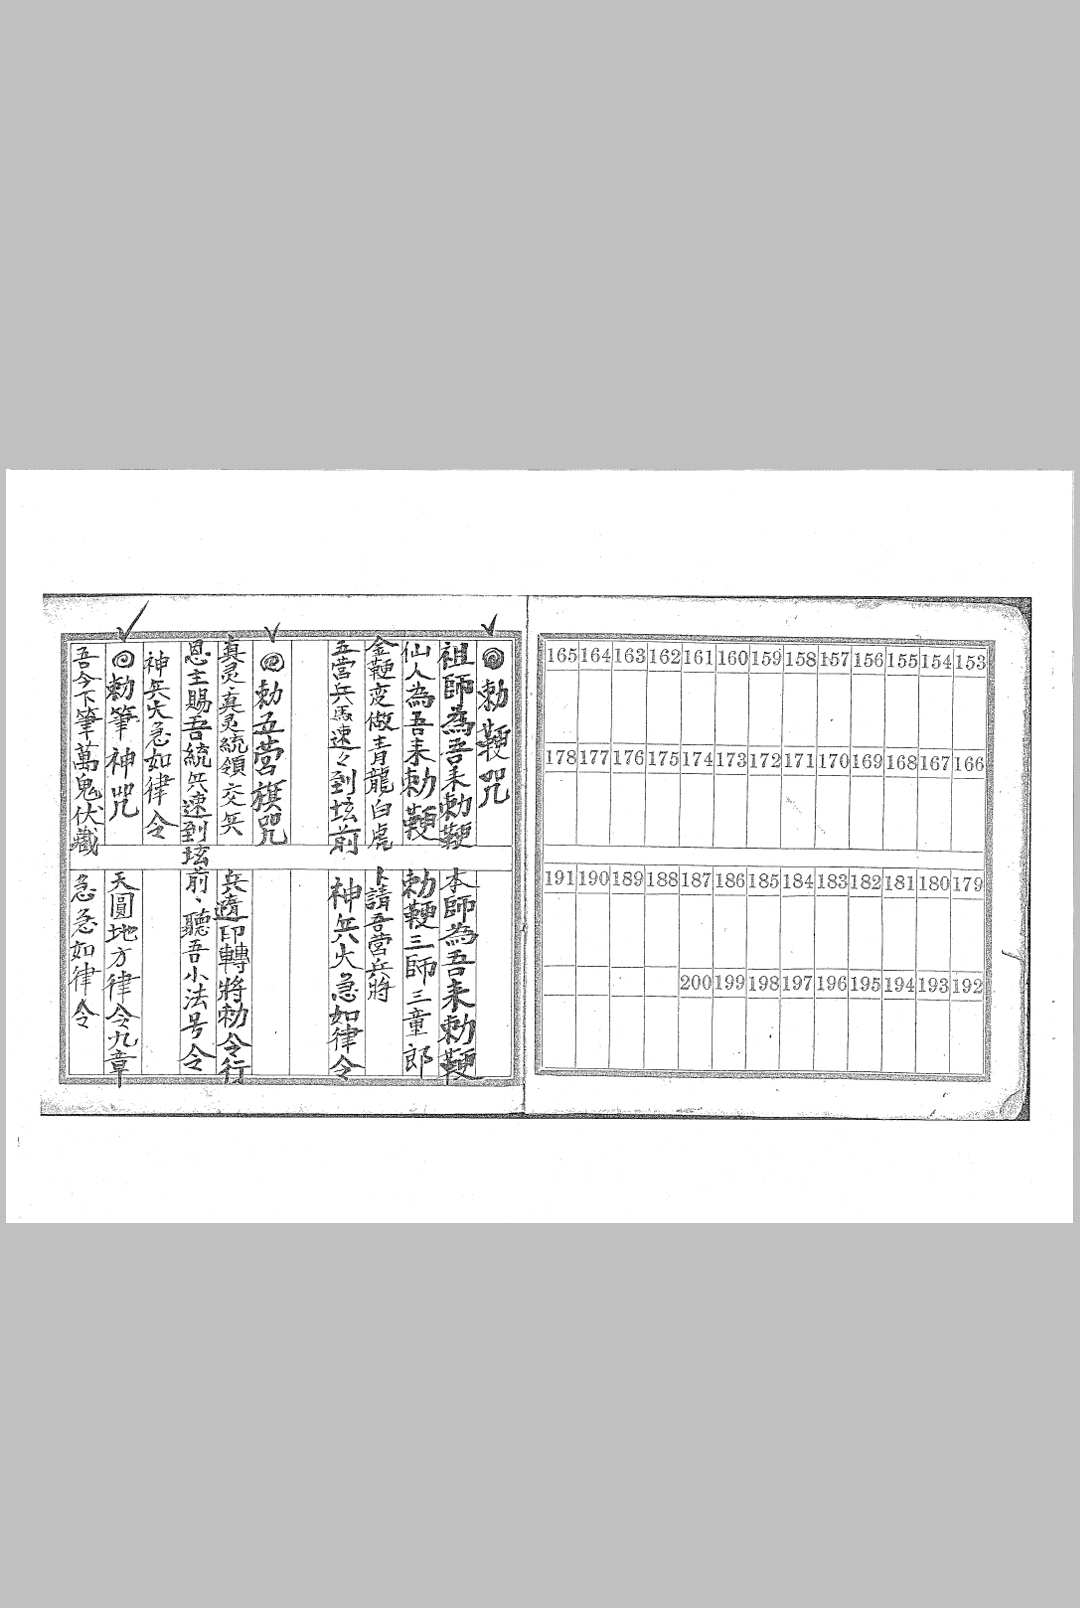 165 164 163 162 161 160 159 158 157 156 155 154 153
178 177 176 175 174 173 172 171 170 169 168 167 166
191 190 189 188 187 186 185 184 183 182 181 180 179
200 199 198 197 196 195 194 193 192
勅鞭咒
祖師為吾来勅鞭 本師為吾来勅鞭
仙人為吾来勅鞭 勅鞭三師三童郎
金鞭变做青龍白虎 卜請吾营兵將
五营兵馬速々到坛前 神兵火急如律令
勅五营旗咒
真灵真灵統領交兵 兵隨印轉將勅令行
恩主賜吾統兵速到坛前、聽吾小法号令
神兵火急如律令
勅筆神咒 天圓地方律令九章
吾今下筆萬鬼伏藏 急急如律令